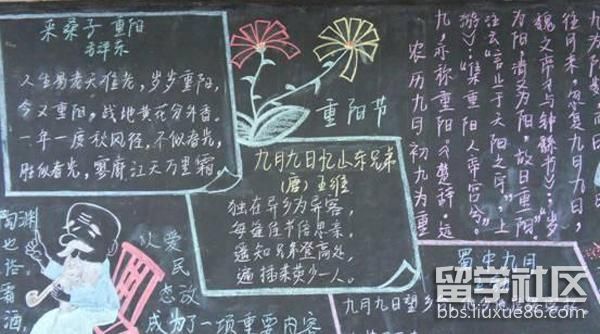 采桑子 重阳
毛泽东
人生易老天难老，岁岁重阳，
今又重阳，战地黄花分外香。
一年一度秋风劲，不似春光，
胜似春光，寥廓江天万里霜。
重阳节
九月九日忆山东兄弟
(唐) 王维
独在异乡为异客，
每逢佳节倍思亲。
遥知兄弟登高处，
遍插茱萸少一人。
农历九月初九为重
九，亦称重阳。《楚辞·远
游》：“集重阳入帝宫兮。”
注云：“
为阳
魏文帝《与钟繇书》：“岁
往月来，忽复九月九日，
九为阳
陶渊
也
霜酒
让爱
民
成为了一项重要内容
蜀中九日
九月九日望乡
留学社区
bbs.liuxue86.com